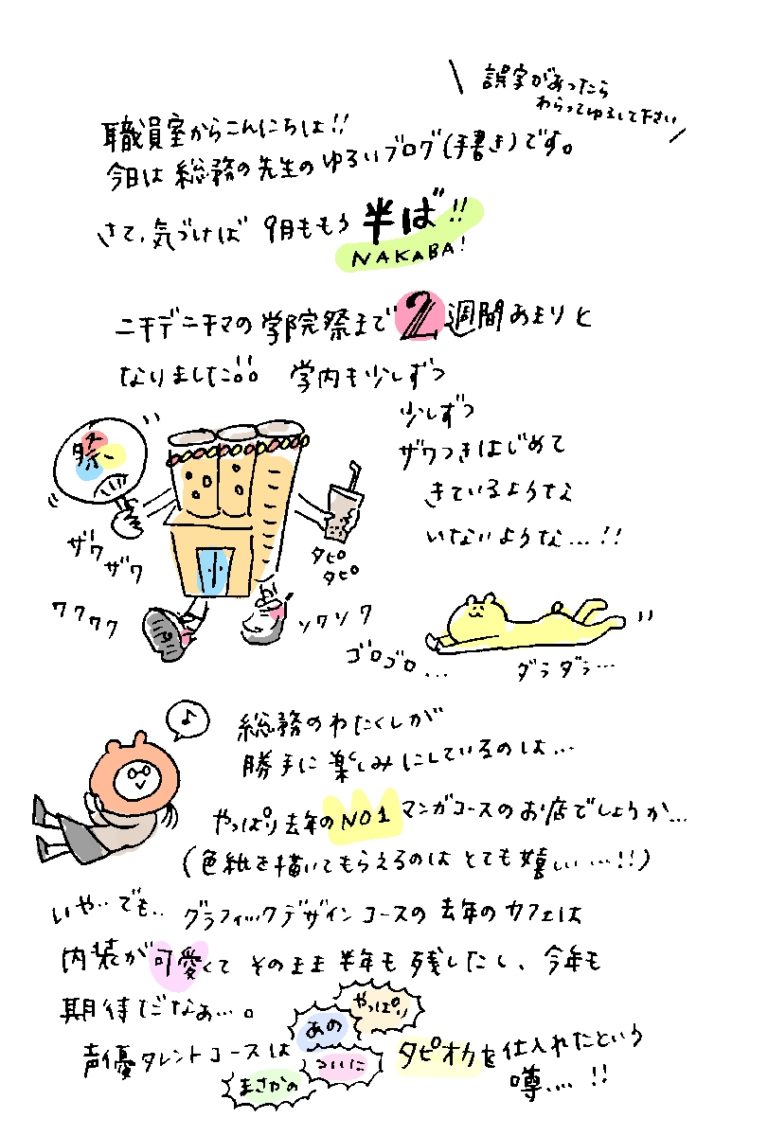 誤字があったら
わらってゆるして下さい
職員室からこんにちは!!
今日は総務の先生のゆるいブログ(手書き)です。
さて、気づけば 9月ももう 半ば!!
NAKABA!
ニチデニチマの学院祭まで 2 週間あまりと
なりました!! 学内も少しずつ
少しずつ
ザワつきはじめて
きているような
いないような...!!
祭
ザワ
ザワ
タピ
タピ
ワクワク
ソワソワ
ゴロゴロ...
ダラダラ...
♪
総務のわたくしが
勝手に楽しみにしているのは...
やっぱり去年のNO1マンガコースのお店でしょうか...
(色紙を描いてもらえるのは とても嬉しい...!!)
いや..でも.. グラフィックデザインコースの去年のカフェは
内装が可愛くて そのまま半年も残したし、今年も
期待だなぁ...。
声優タレントコースは あの やっぱり
まさかの ついに タピオカを仕入れたという
噂....!!